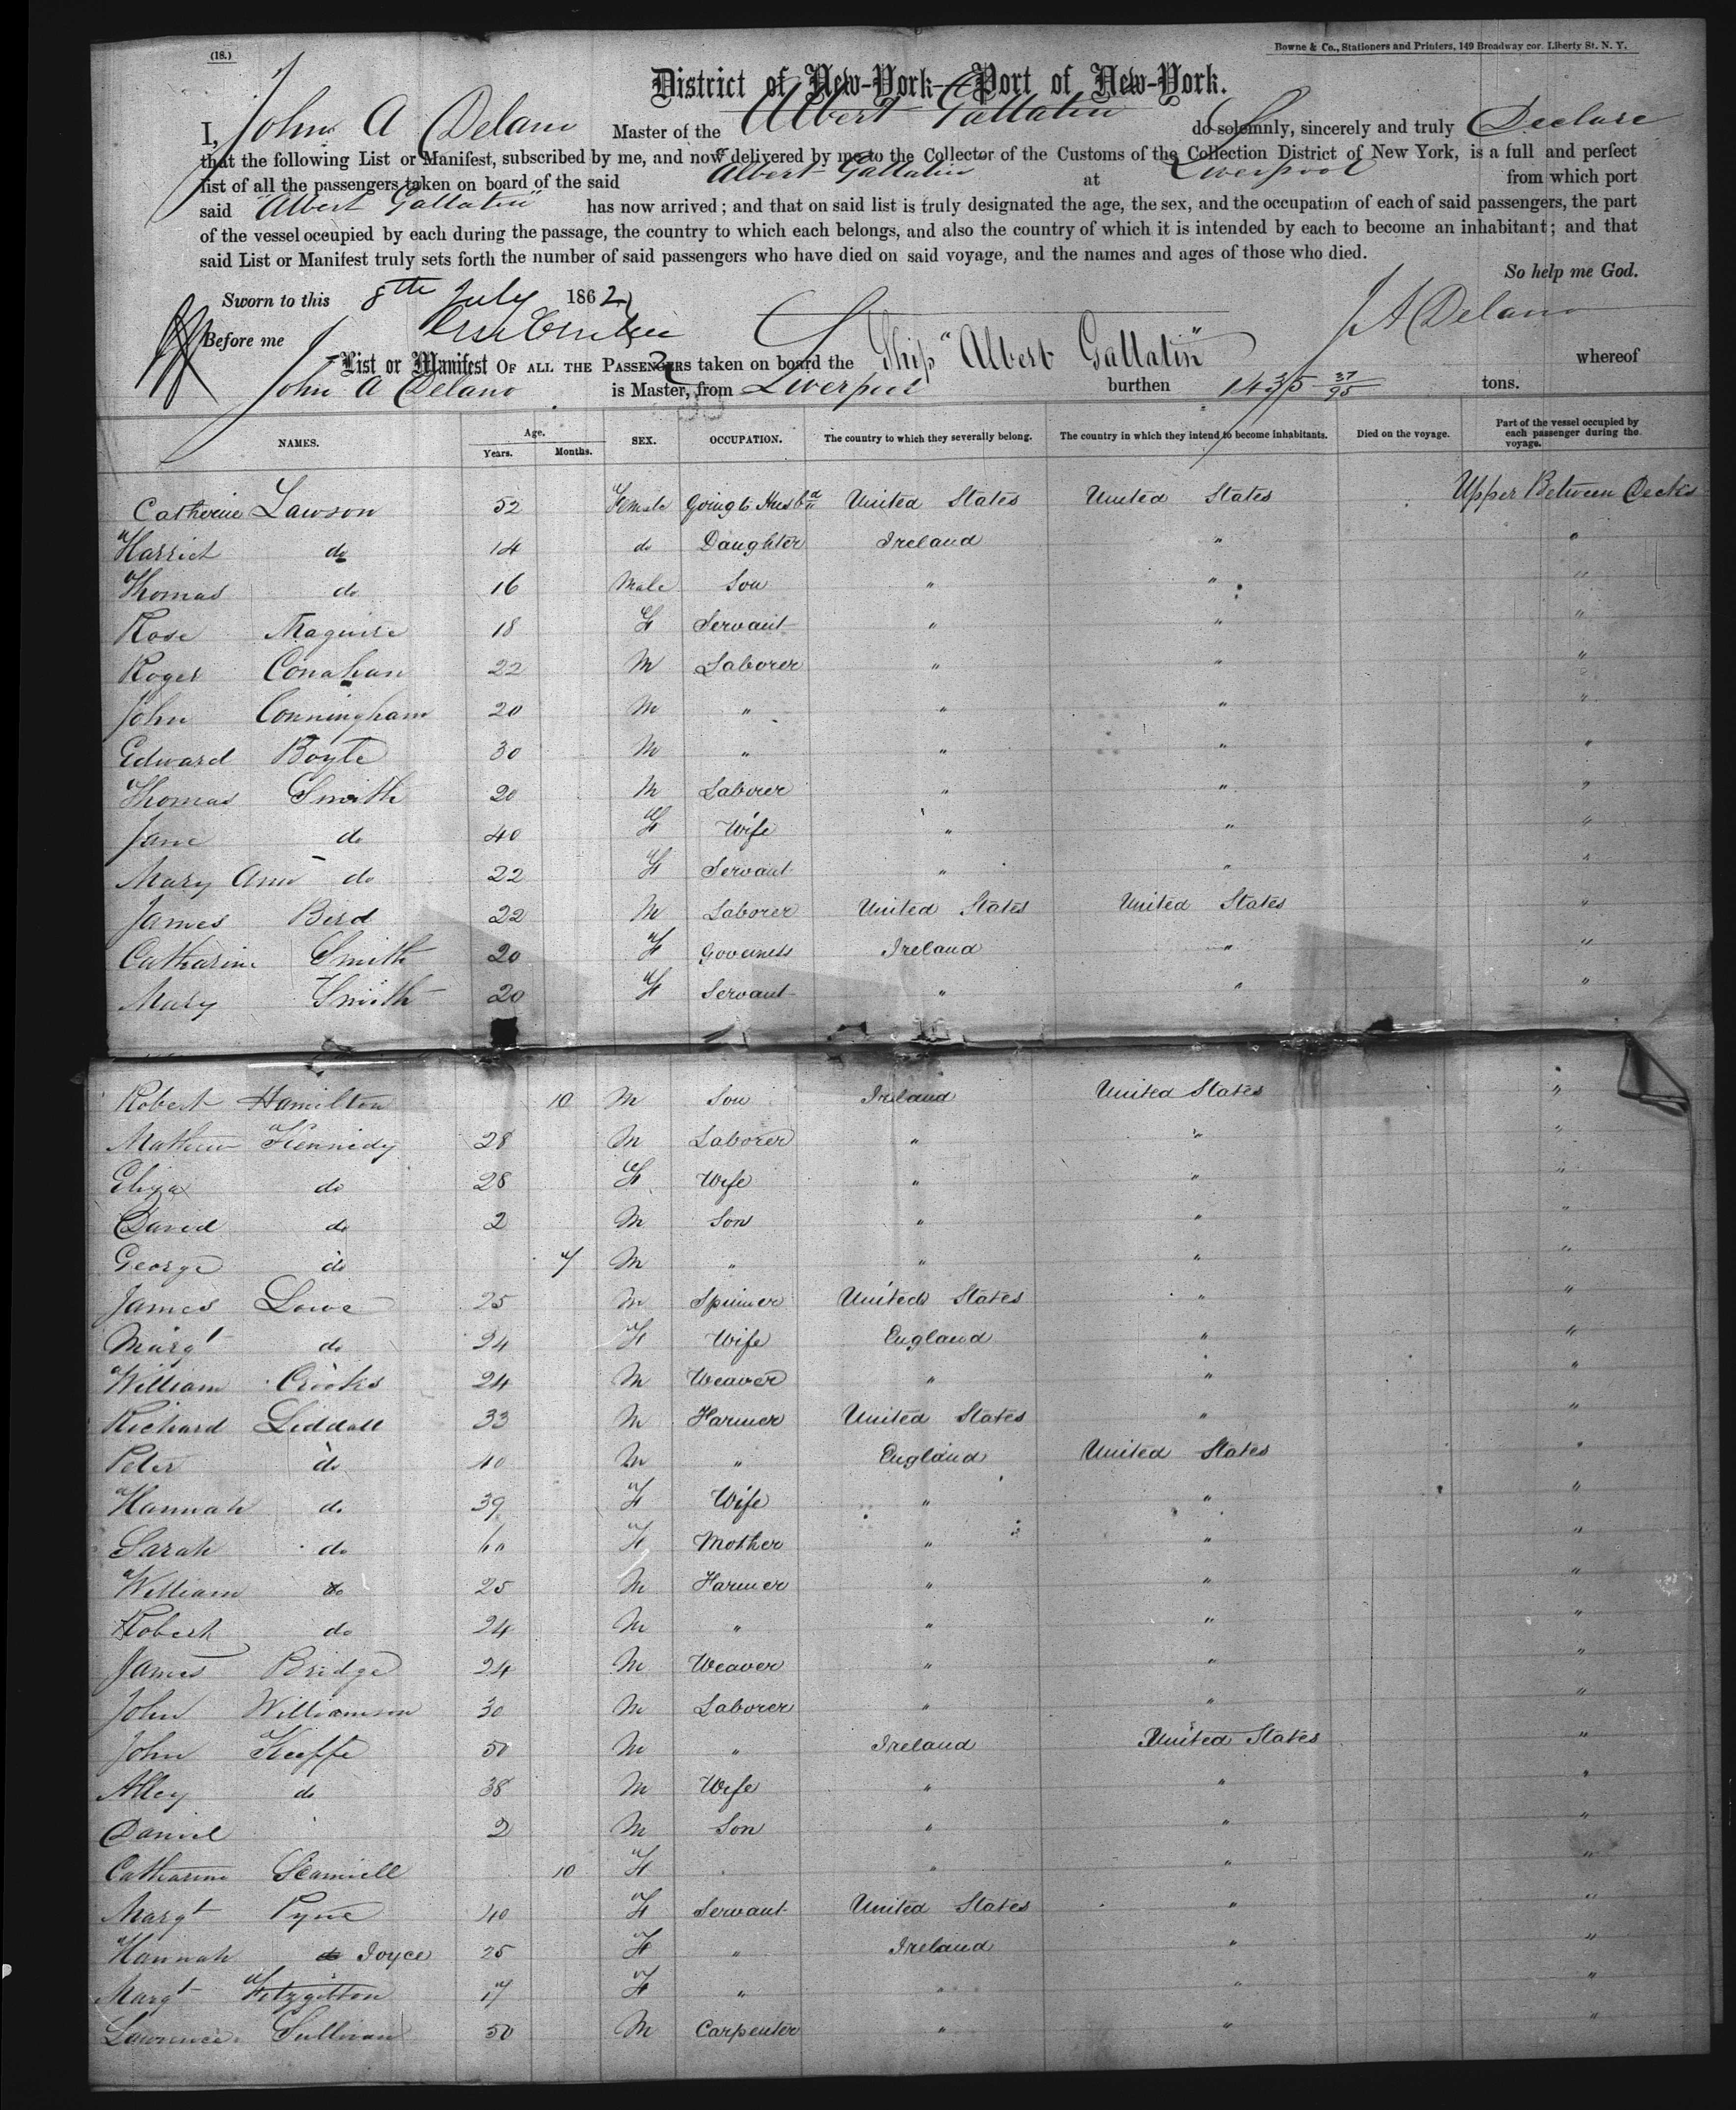 (18.)
Bowne & Co., Stationers and Printers, 149 Broadway cor. Liberty St. N. Y.
District of New-York—Port of New-York.
I, John A Delano Master of the Albert Gallatin do solemnly, sincerely and truly Declare
that the following List or Manifest, subscribed by me, and now delivered by me to the Collector of the Customs of the Collection District of New York, is a full and perfect
list of all the passengers taken on board of the said Albert Gallatin at Liverpool from which port
said "Albert Gallatin" has now arrived; and that on said list is truly designated the age, the sex, and the occupation of each of said passengers, the part
of the vessel occupied by each during the passage, the country to which each belongs, and also the country of which it is intended by each to become an inhabitant; and that
said List or Manifest truly sets forth the number of said passengers who have died on said voyage, and the names and ages of those who died.
So help me God.
Sworn to this 8th July 1862
J A Delano
Before me
List or Manifest OF ALL THE PASSENGERS taken on board the Ship "Albert Gallatin" whereof
John A Delano is Master, from Liverpool burthen 1435 37/95 tons.
NAMES. Age. Years. Months. SEX. OCCUPATION. The country to which they severally belong. The country in which they intend to become inhabitants. Died on the voyage. Part of the vessel occupied by each passenger during the voyage.
Catherine Lawson 52 Female Going to Husbd United States United States Upper Between Decks
Harriet do 14 do Daughter Ireland " "
Thomas do 16 Male Son " " "
Rose Maguire 18 F Servant " " "
Roger Conahan 22 M Laborer " " "
John Conningham 20 M " " " "
Edward Boyle 30 M " " " "
Thomas Smith 20 M Laborer " " "
Jane do 40 F Wife " " "
Mary Ann do 22 F Servant " " "
James Bird 22 M Laborer United States United States "
Catharine Smith 20 F Governess Ireland " "
Mary Smith 20 F Servant " " "
Robert Hamilton 10 M Son Ireland United States "
Mathew Kennedy 28 M Laborer " " "
Eliza do 28 F Wife " " "
David do 2 M Son " " "
George do 7 M " " " "
James Lowe 25 M Spinner United States " "
Margt do 24 F Wife England " "
William Crooks 24 M Weaver " " "
Richard Liddall 33 M Farmer United States " "
Peter do 40 M " England United States "
Hannah do 39 F Wife " " "
Sarah do 60 F Mother " " "
William do 25 M Farmer " " "
Robert do 24 M " " " "
James Bridge 24 M Weaver " " "
John Williamson 30 M Laborer " " "
John Keeffe 50 M " Ireland United States "
Alley do 38 M Wife " " "
Daniel 2 M Son " " "
Catharine Scannell 10 F " " "
Margt Pyne 40 F Servant United States " "
Hannah do Joyce 25 F " Ireland " "
Margt Fitzgibbon 17 F " " " "
Lawrence Sullivan 50 M Carpenter " " "